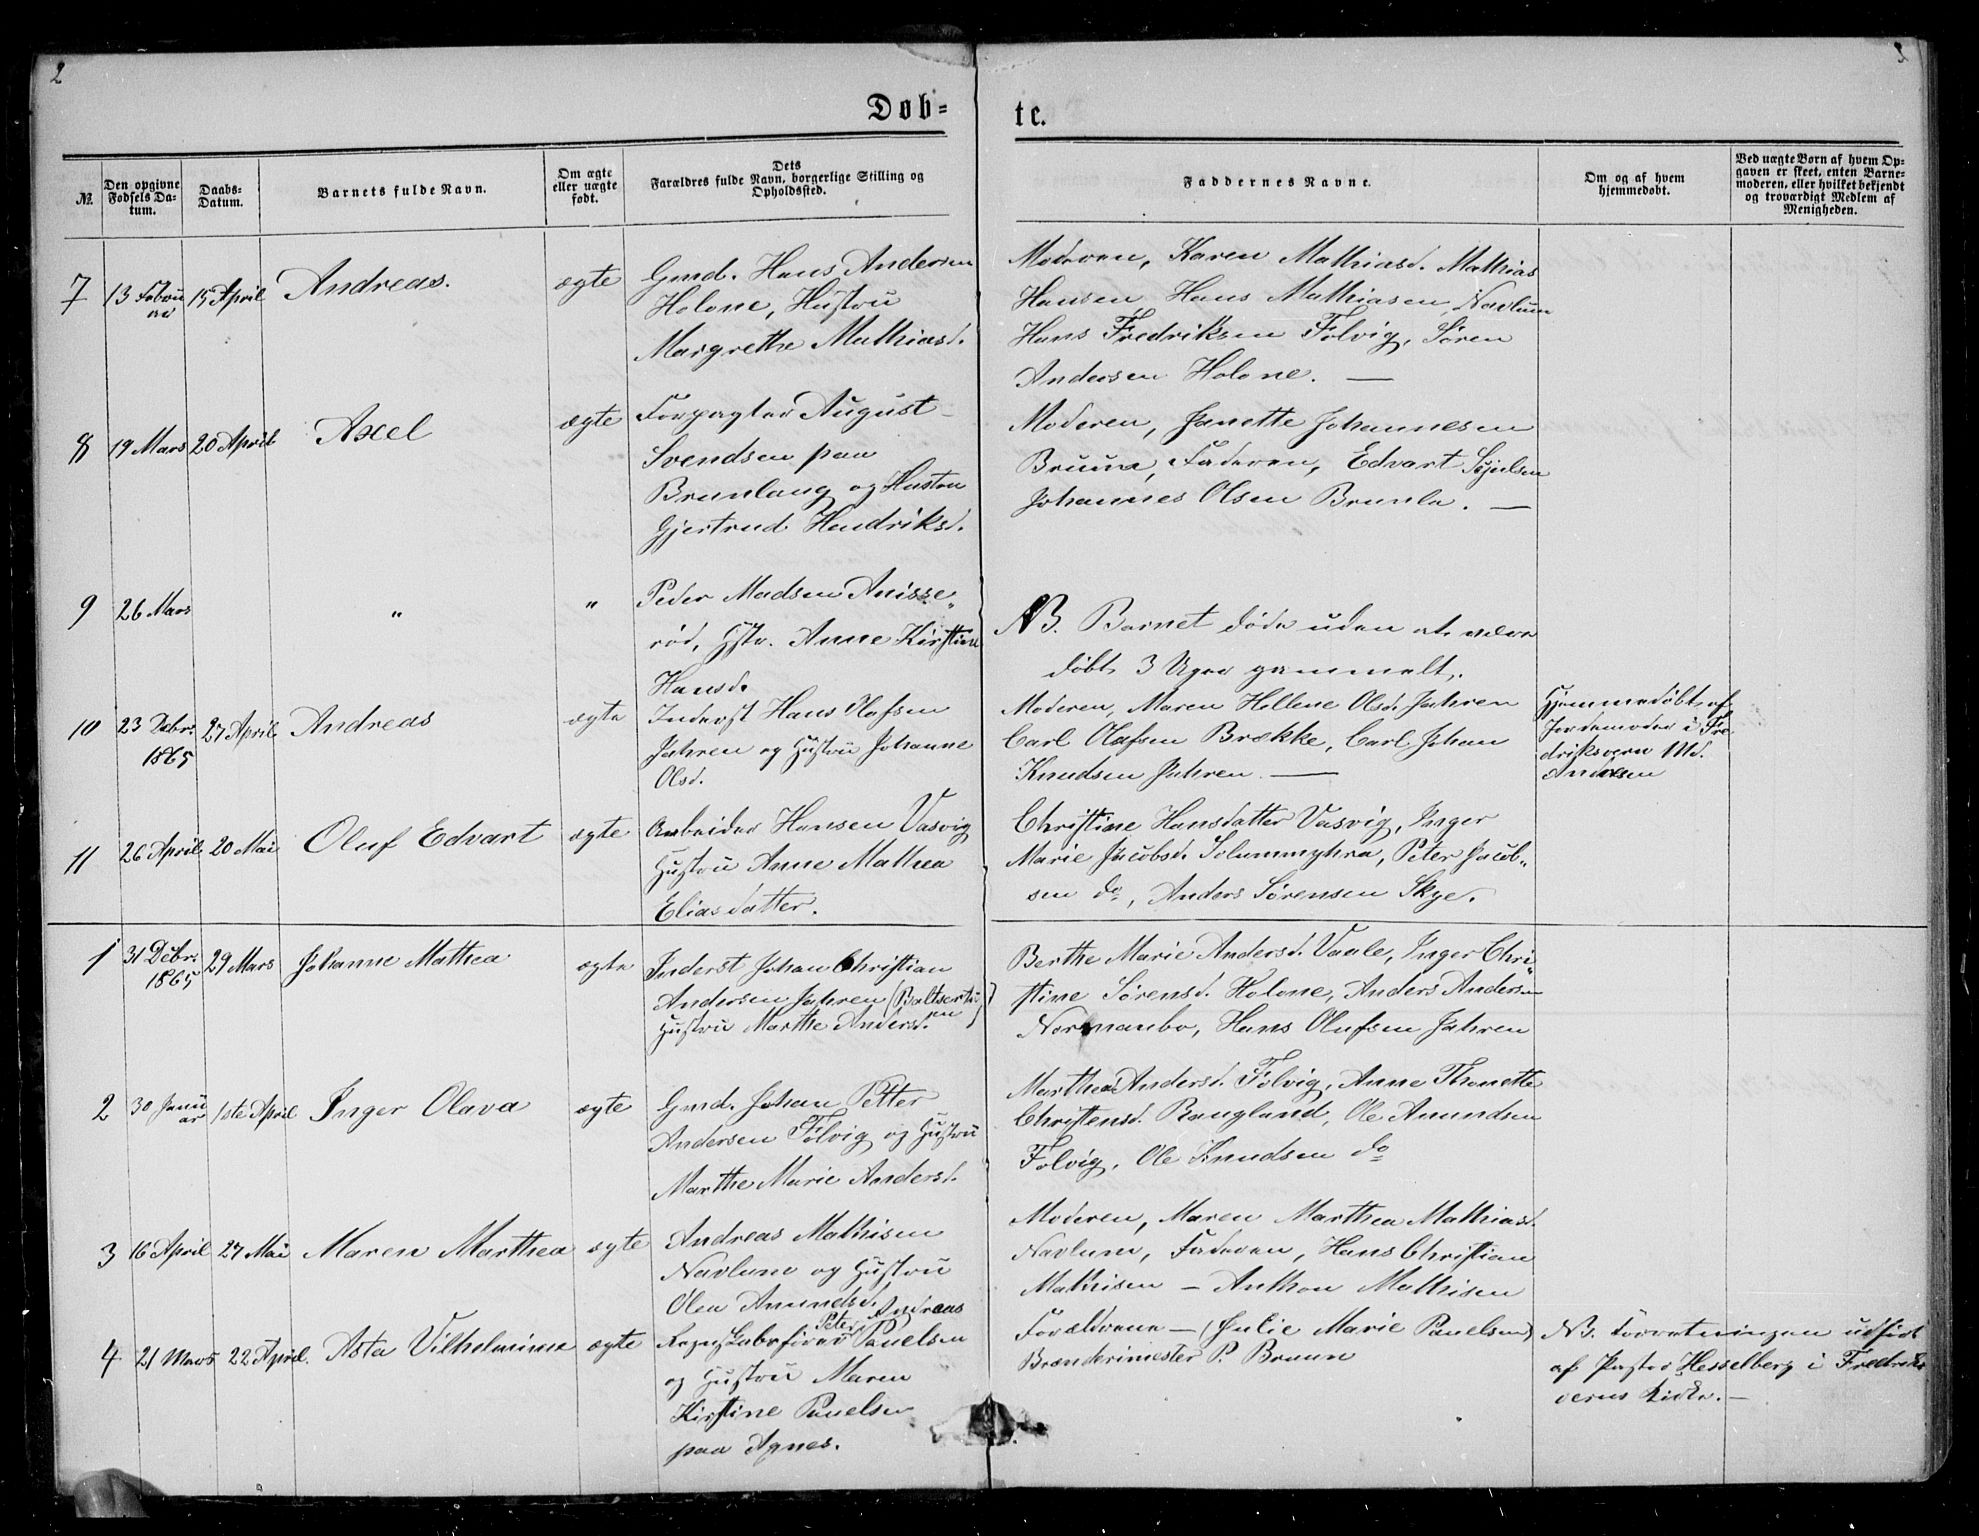 2
3
Døb=
te.
№
Den opgivne Fødsels Da-tum.
Daabs-Datum.
Barnets fulde Navn.
Om ægte eller uægte født.
Dets Forældres fulde Navn, borgerlige Stilling og Opholdssted.
Faddernes Navne.
Om og af hvem hjemmedøbt.
Ved uægte Børn af hvem Op-gaven er skeet, enten Barne-moderen, eller hvilket bekjendt og troværdigt Medlem af Menigheden.
7 13 Febru 15 April Andreas. ægte Gmd. Hans Andersen
ar
Holone, Hustru
Margrethe Mathiasd.
Moderen, Karen Mathiasd. Mathias
Hansen, Hans Mathiasen Navlum
Hans Fredriksen Folvig, Søren
Andersen Holone. —
8 19 Mars 20 April Axel ægte Forpagter August
Svendsen paa
Brunlaug og Hustru
Gjertrud Hendriksd.
Moderen, Janette Johannesen
Bruun, Faderen, Edvart
Johannes Olsen Brunla. —
9 26 Mars " " Peder Madsen Anisse„
rød, Hstr. Anne Kirstine
Hansd.
NB. Barnet døde uden at være
døbt, 3 Uger gammelt.
10 23 Debr. 27 April Andreas ægte Inderst Hans Olafsen
1865
Jahren og Hustru Johanne
Olsd.
Moderen, Maren Hellene Olsd. Jahren
Carl Olafsen Brække, Carl Johan
Knudsen Jahren. —
Hjemmedøbt af
Jordemoder i Fre
driksværn Md.
Andersen
11 26 April 20 Mai Oluf Edvart ægte Arbeider Hansen Vasvig
Hustru Anne Mathea
Eliasdatter.
Christine Hansdatter Vasvig, Inger
Marie Jacobsd. Solummyhra, Peter Jacob„
sen do, Anders Sørensen Skye.
1 31 Debr. 29 Mars Johanne Mathea ægte Inderst Johan Christian
1865
Andersen Jahren (Baltsertu
en)
Hustru Marthe Andersd.
Berthe Marie Andersd. Vaale, Inger Chri„
stine Sørensd. Holone, Anders Andersen
Normanbo, Hans Olufsen Jahren
2 30 Janu 1ste April Inger Olava ægte Gmd. Johan Petter
ar
Andersen Folvig og Hustru
Marthe Marie Andersd.
Marthea Andersd. Folvig, Anne Thonette
Christensd. Rangland, Ole Amundsen
Folvig, Ole Knudsen do
3 16 April 27 Mai Maren Marthea ægte Andreas Mathisen
Navlum og Hustru
Olea Amundsd.
Moderen, Maren Marthea Mathiasd.
Navlum, Faderen, Hans Christian
Mathisen — Anthon Mathisen
4 21 Mars 22 April. Asta Vilhelmine ægte
Peter Andreas
Pauelsen
og Hustru Maren
Kirstine Pauelsen
paa Agnes.
Forældrene — (Julie Marie Pauelsen)
Brænderimester P. Bruun
NB. Forretningen udført
af Pastor Hesselberg i Fredriks
værns Kirke. —